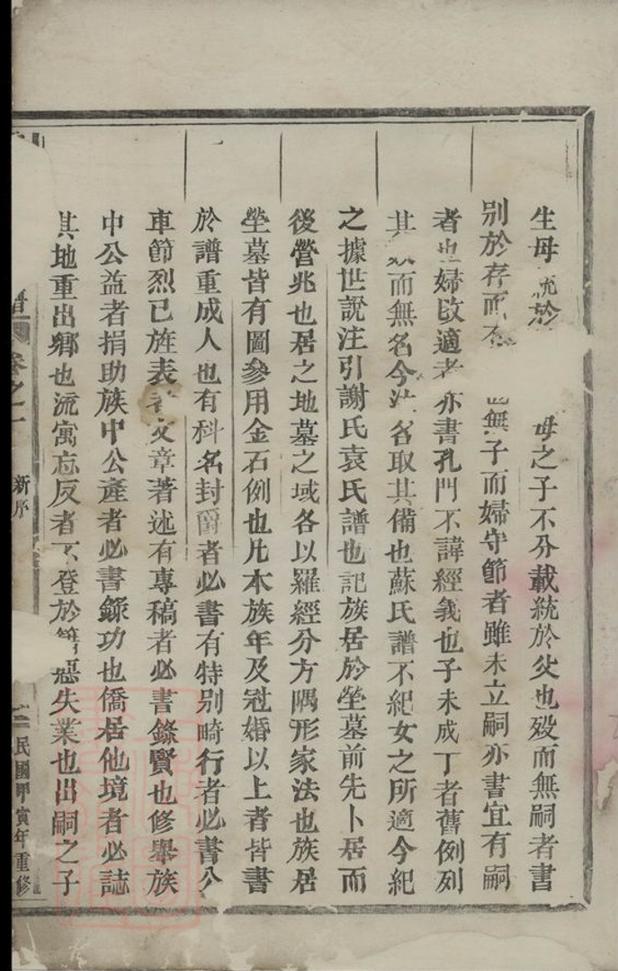 生母統於 母之子不分載統於父也殁而無嗣者書
別於存而 無子而婦守節者雖未立嗣亦書宜有嗣
者也婦改適者亦書孔門不諱經義也子未成丁者舊例列
其 而無名今 名取其備也蘇氏譜不紀女之所適今紀
之據世說注引謝氏袁氏譜也記族居於塋墓前先卜居而
後營兆也居之地墓之域各以羅經分方隅形家法也族居
塋墓皆有圖參用金石例也凡本族年及冠婚以上者皆書
於譜重成人也有科名封爵者必書有特別畸行者必書公
車節烈已旌表者文章著述有專稿者必書錄賢也修舉族
中公益者捐助族中公產者必書錄功也僑居他境者必誌
其地重出鄉也流寓忘反者不登於 惡失業也出嗣之子
譜 卷之一 新序 二 民國甲寅年重修